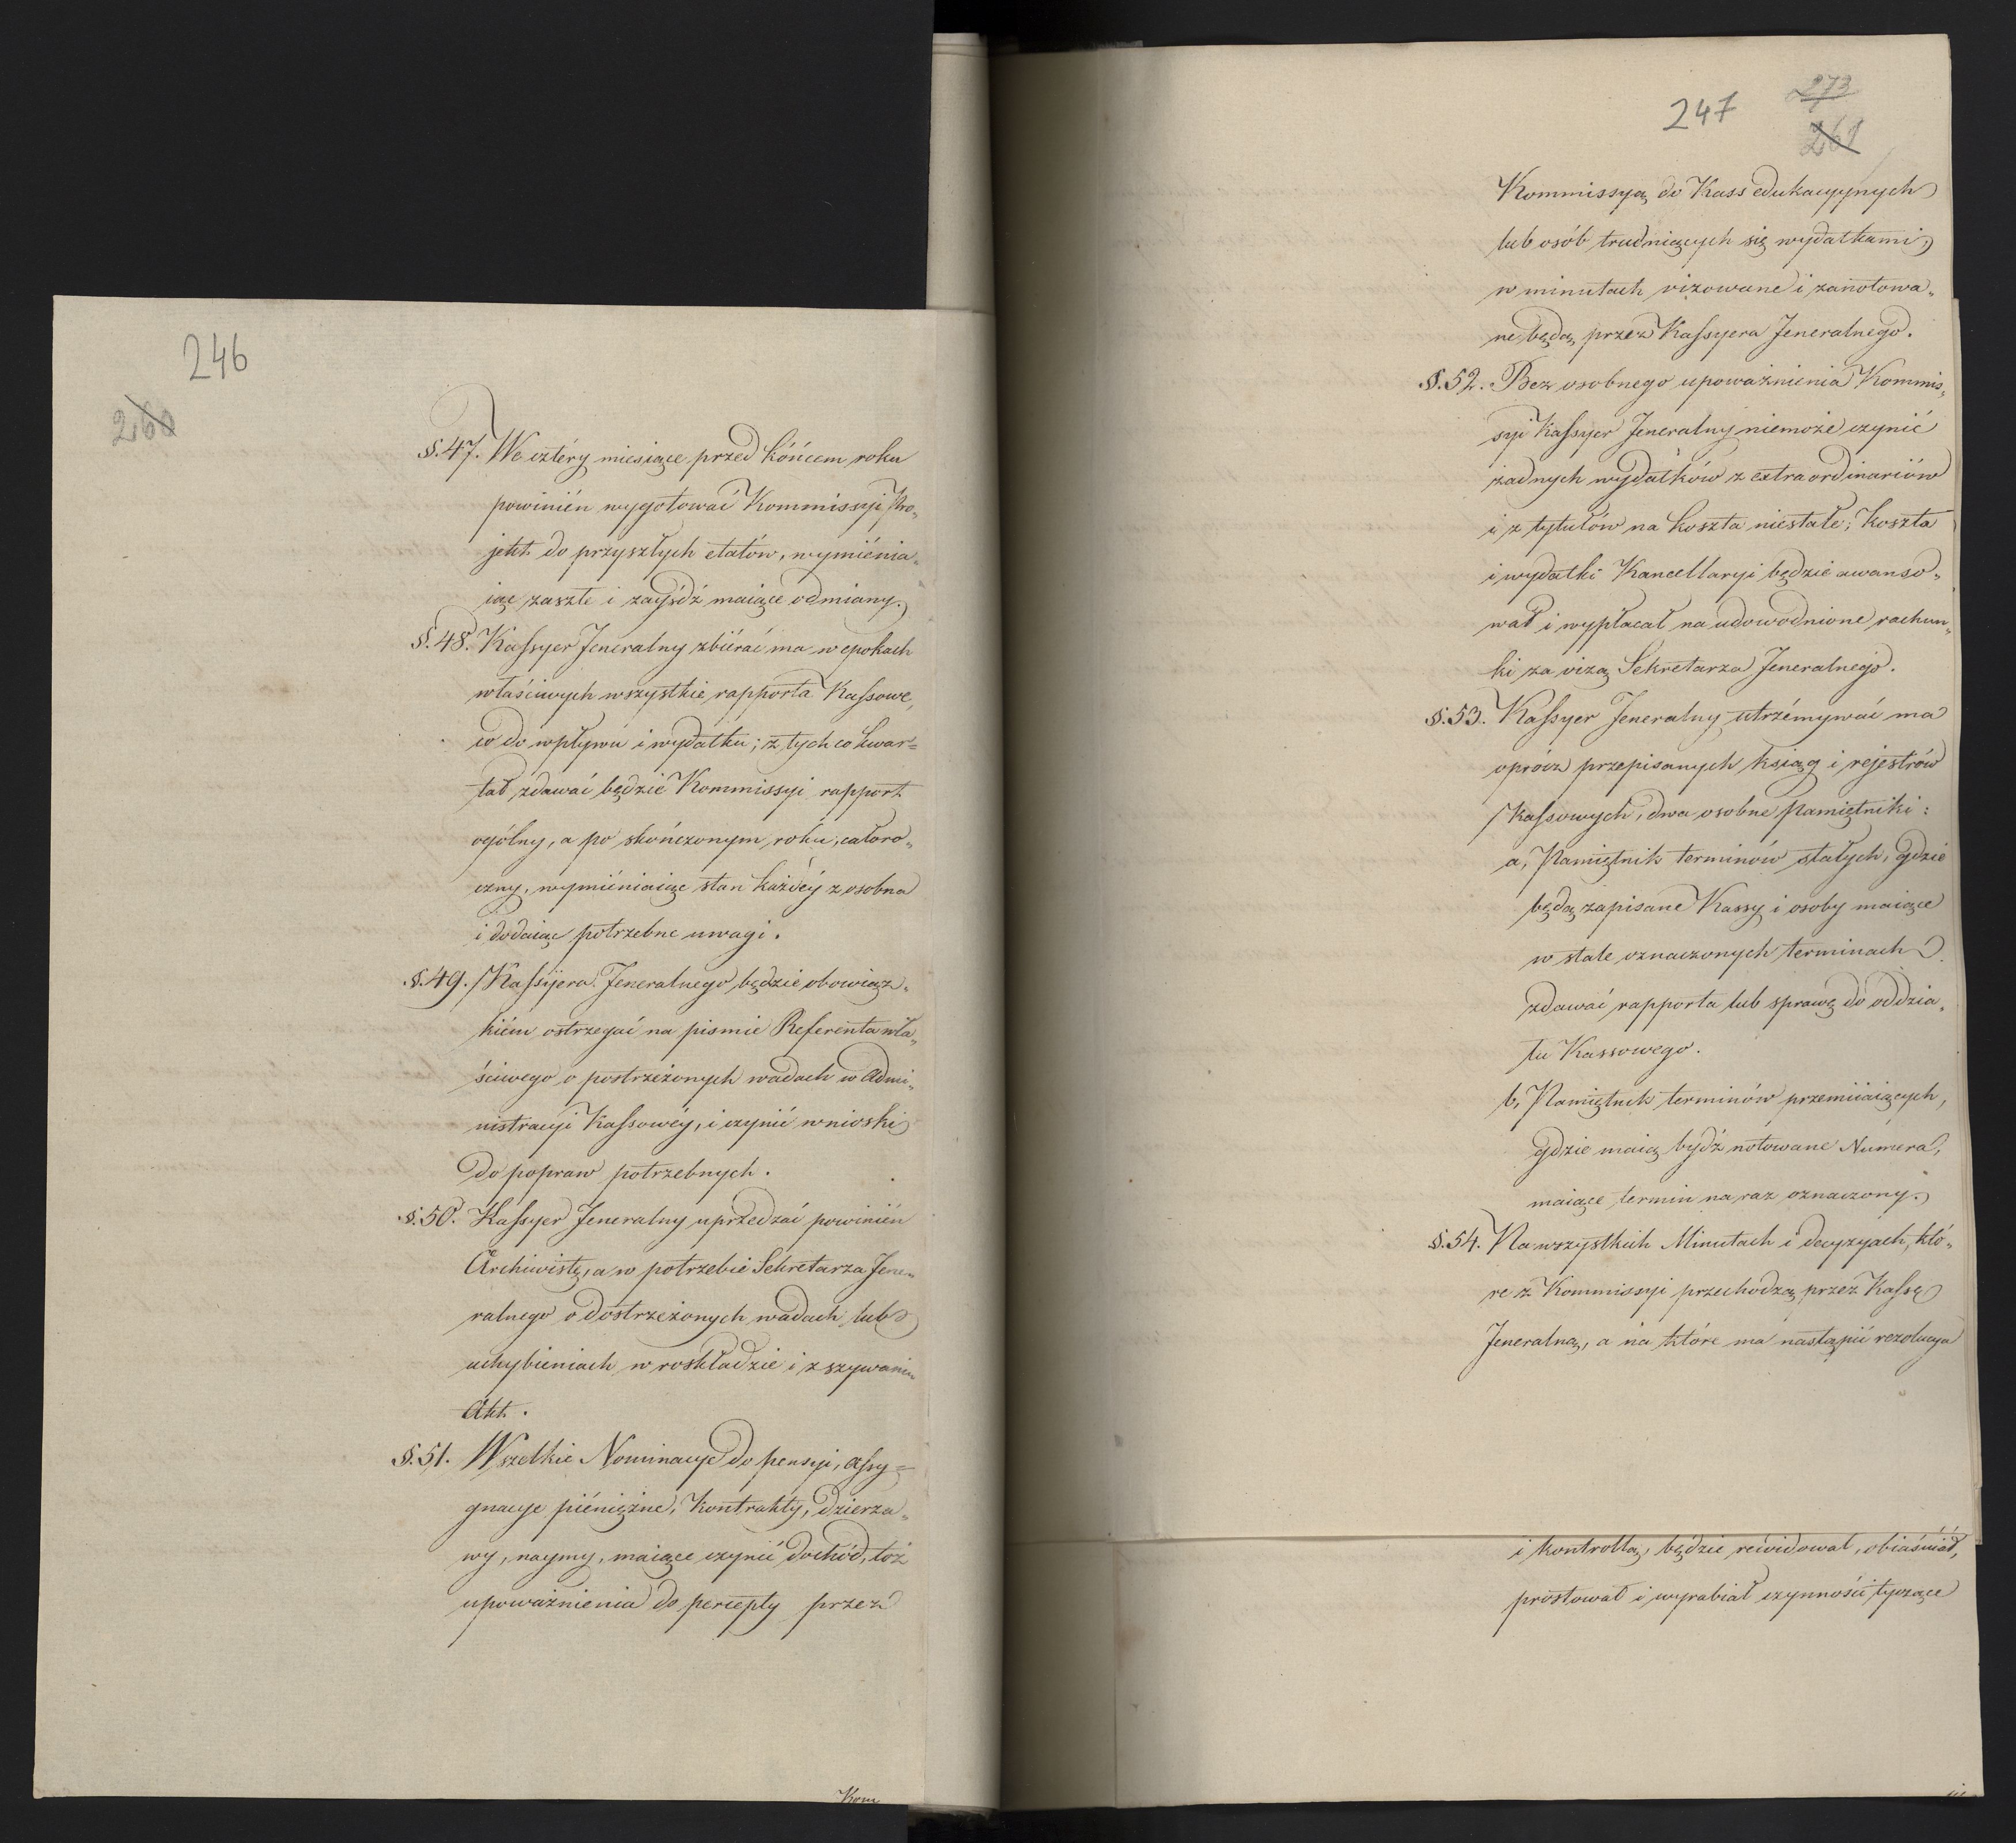 246
260
§.47. We cztéry miesiące przed kóńcem roku
powinién wygotować Kommissyi Pro„
jekt do przyszłych etatów, wymiénia„
iąc zaszłe i zayśdź maiące odmiany.
§.48. Kassyer Jeneralny zbiérać ma w epokach
właściwych wszystkie rapporta Kassowe,
co do wpływu i wydatku; z tych co kwar=
tał zdawać będzie Kommissyi rapport
ogólny, a po skończonym roku, całoro„
czny, wymiéniaiąc stan każdéy z osobna
i dodaiąc potrzebne uwagi.
§.49. Kassyera Jeneralnego będzie obowiąz„
kiém ostrzegać na pismie Referenta wła„
ściwego o postrzeżonych wadach w Admi„
nistracyi Kassowéy, i czynić wnioski
do popraw potrzebnych.
§.50. Kassyer Jeneralny uprzedzać powinién
Archiwistę, a w potrzebie Sekretarza Jene„
ralnego o dostrzeżonych wadach lub
uchybieniach w roskładzie i zszywaniu
Akt.
§.51. Wszelkie Nominacye do pensyi, assy=
gnacye piéniężne, Kontrakty, dzierża„
wy, naymy, maiące czynić dochód, toż
upoważnienia do percepty przez
Kom
247
273
261
Kommissyą do Kass edukacyynych
lub osób trudniących się wydatkami,
w minutach vizowane i zanotowa„
ne będą przez Kassyera Jeneralnego.
§.52. Bez osobnego upoważnienia Kommis„
syi Kassyer Jeneralny niemoże czynić
żadnych wydatków z extraordinariów
i z tytułów na koszta niestałe; koszta
i wydatki Kancellaryi będzie awanso„
wał i wypłacał na udowodnione rachun„
ki za vizą Sekretarza Jeneralnego.
§.53. Kassyer Jeneralny utrzémywać ma
oprócz przepisanych ksiąg i rejestrów
Kassowych, dwa osobne Pamiętniki:
a, Pamiętnik terminów stałych, gdzie
będą zapisane Kassy i osoby maiące
w stale oznaczonych terminach
zdawać rapporta lub sprawę do oddzia„
łu Kassowego.
b, Pamiętnik terminów przemiiaiących,
gdzie maią bydź notowane Numera,
maiące termin na raz oznaczony.
§.54. Na wszystkich Minutach i decyzyach, któ„
re z Kommissyi przechodzą przez Kassę
Jeneralną, a na które ma nastąpić rezolucya
i kontrollą, będzie rewidował, obiaśniał,
prostował i wyrabiał czynności tyczące